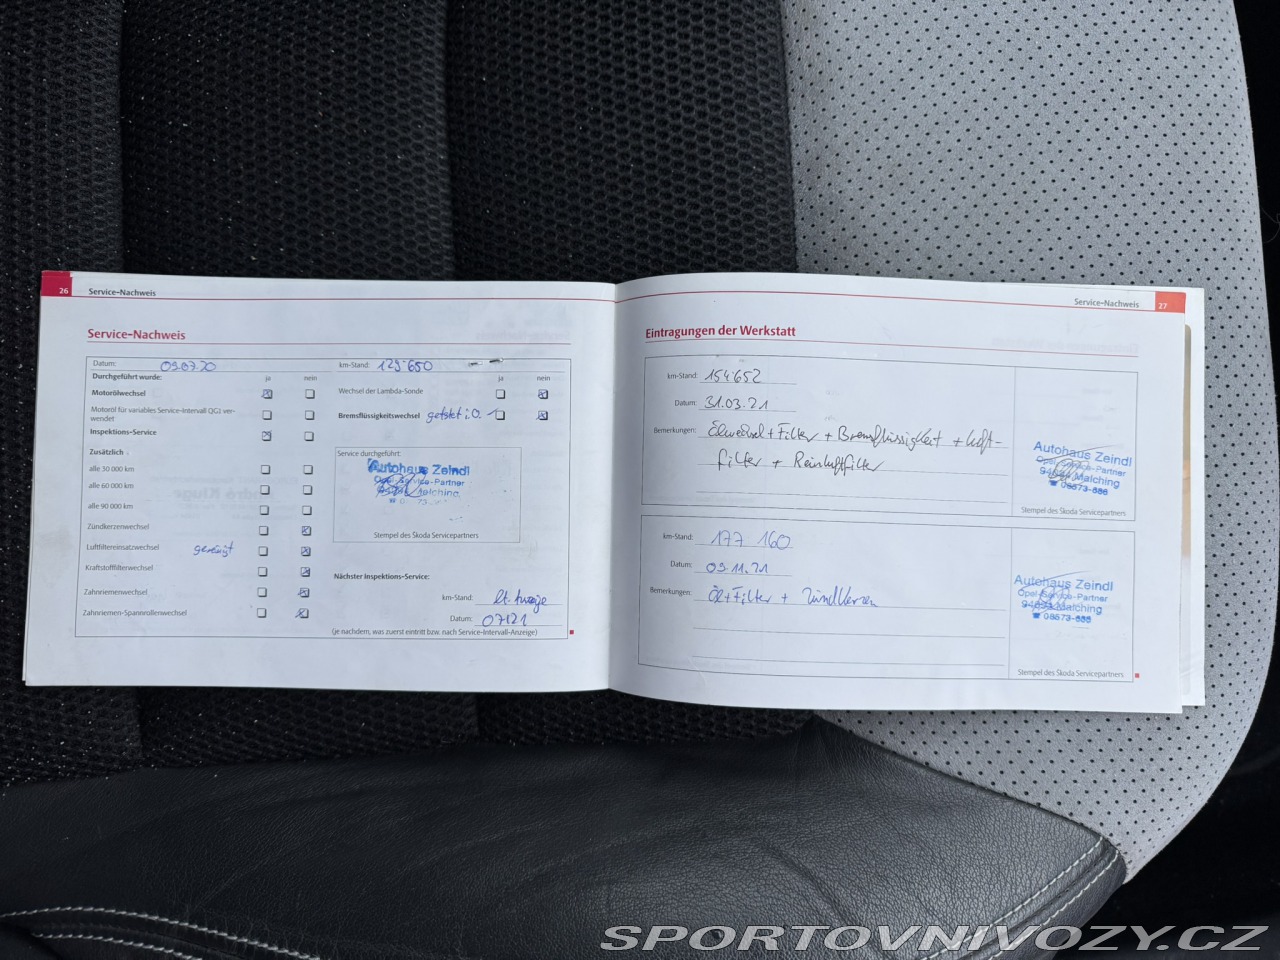 26 Service-Nachweis
Service-Nachweis
Datum: 09.07.20 km-Stand: 129'650
Durchgeführt wurde: ja nein ja nein
Motorölwechsel
Wechsel der Lambda-Sonde
Motoröl für variables Service-Intervall QG1 ver-
wendet
Bremsflüssigkeitswechsel getstet i.O.
Inspektions-Service
Zusätzlich
alle 30 000 km
alle 60 000 km
alle 90 000 km
Zündkerzenwechsel
Luftfiltereinsatzwechsel gereinigt
Kraftstofffilterwechsel
Zahnriemenwechsel
Zahnriemen-Spannrollenwechsel
Service durchgeführt:
Autohaus Zeindl
Opel-Service-Partner
94094 Malching
☎ 08573-
Stempel des Škoda Servicepartners
Nächster Inspektions-Service:
km-Stand: lt. Anzeige
Datum: 07/21
(je nachdem, was zuerst eintritt bzw. nach Service-Intervall-Anzeige)
Service-Nachweis 27
Eintragungen der Werkstatt
km-Stand: 154'652
Datum: 31.03.21
Bemerkungen: Ölwechsel + Filter + Bremsflüssigkeit + Luft-
filter + Reinluftfilter
Autohaus Zeindl
Opel-Service-Partner
94094 Malching
☎ 08573-686
Stempel des Škoda Servicepartners
km-Stand: 177 160
Datum: 09.11.21
Bemerkungen: Öl + Filter + Zündkerzen
Autohaus Zeindl
Opel-Service-Partner
94094 Malching
☎ 08573-686
Stempel des Škoda Servicepartners
SPORTOVNIVOZY.CZ